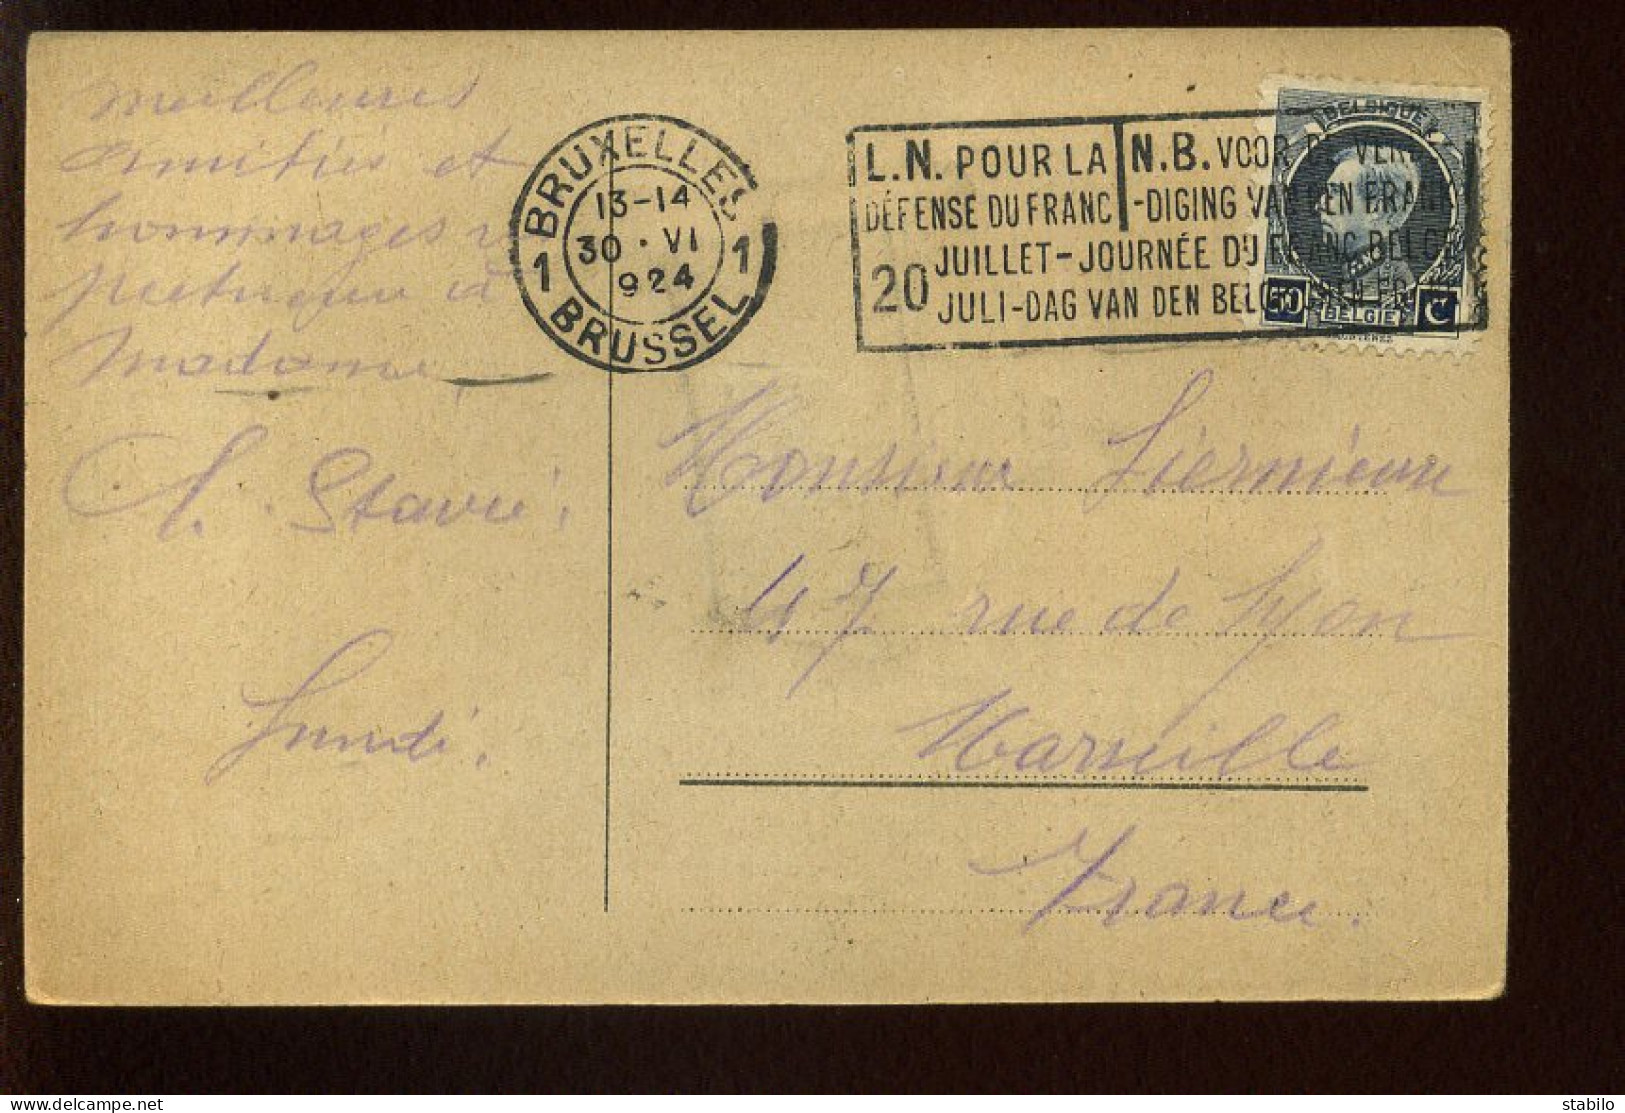 meilleures
amitiés et
hommages
à
Madame,
S. Stavié.
Lundi.
BRUXELLES
13-14
30 · VI
924
1 1
BRUSSEL
L.N. POUR LA
DÉFENSE DU FRANC
N.B. VOOR DE VER
-DIGING VAN DEN FRANK
20
JUILLET-JOURNÉE DU FRANC BELGE
JULI-DAG VAN DEN BELGISCHEN FRANK
BELGIQUE
50 C
BELGIE
Monsieur Liernieux
47 rue de Lyon
Marseille
France.
stabilo